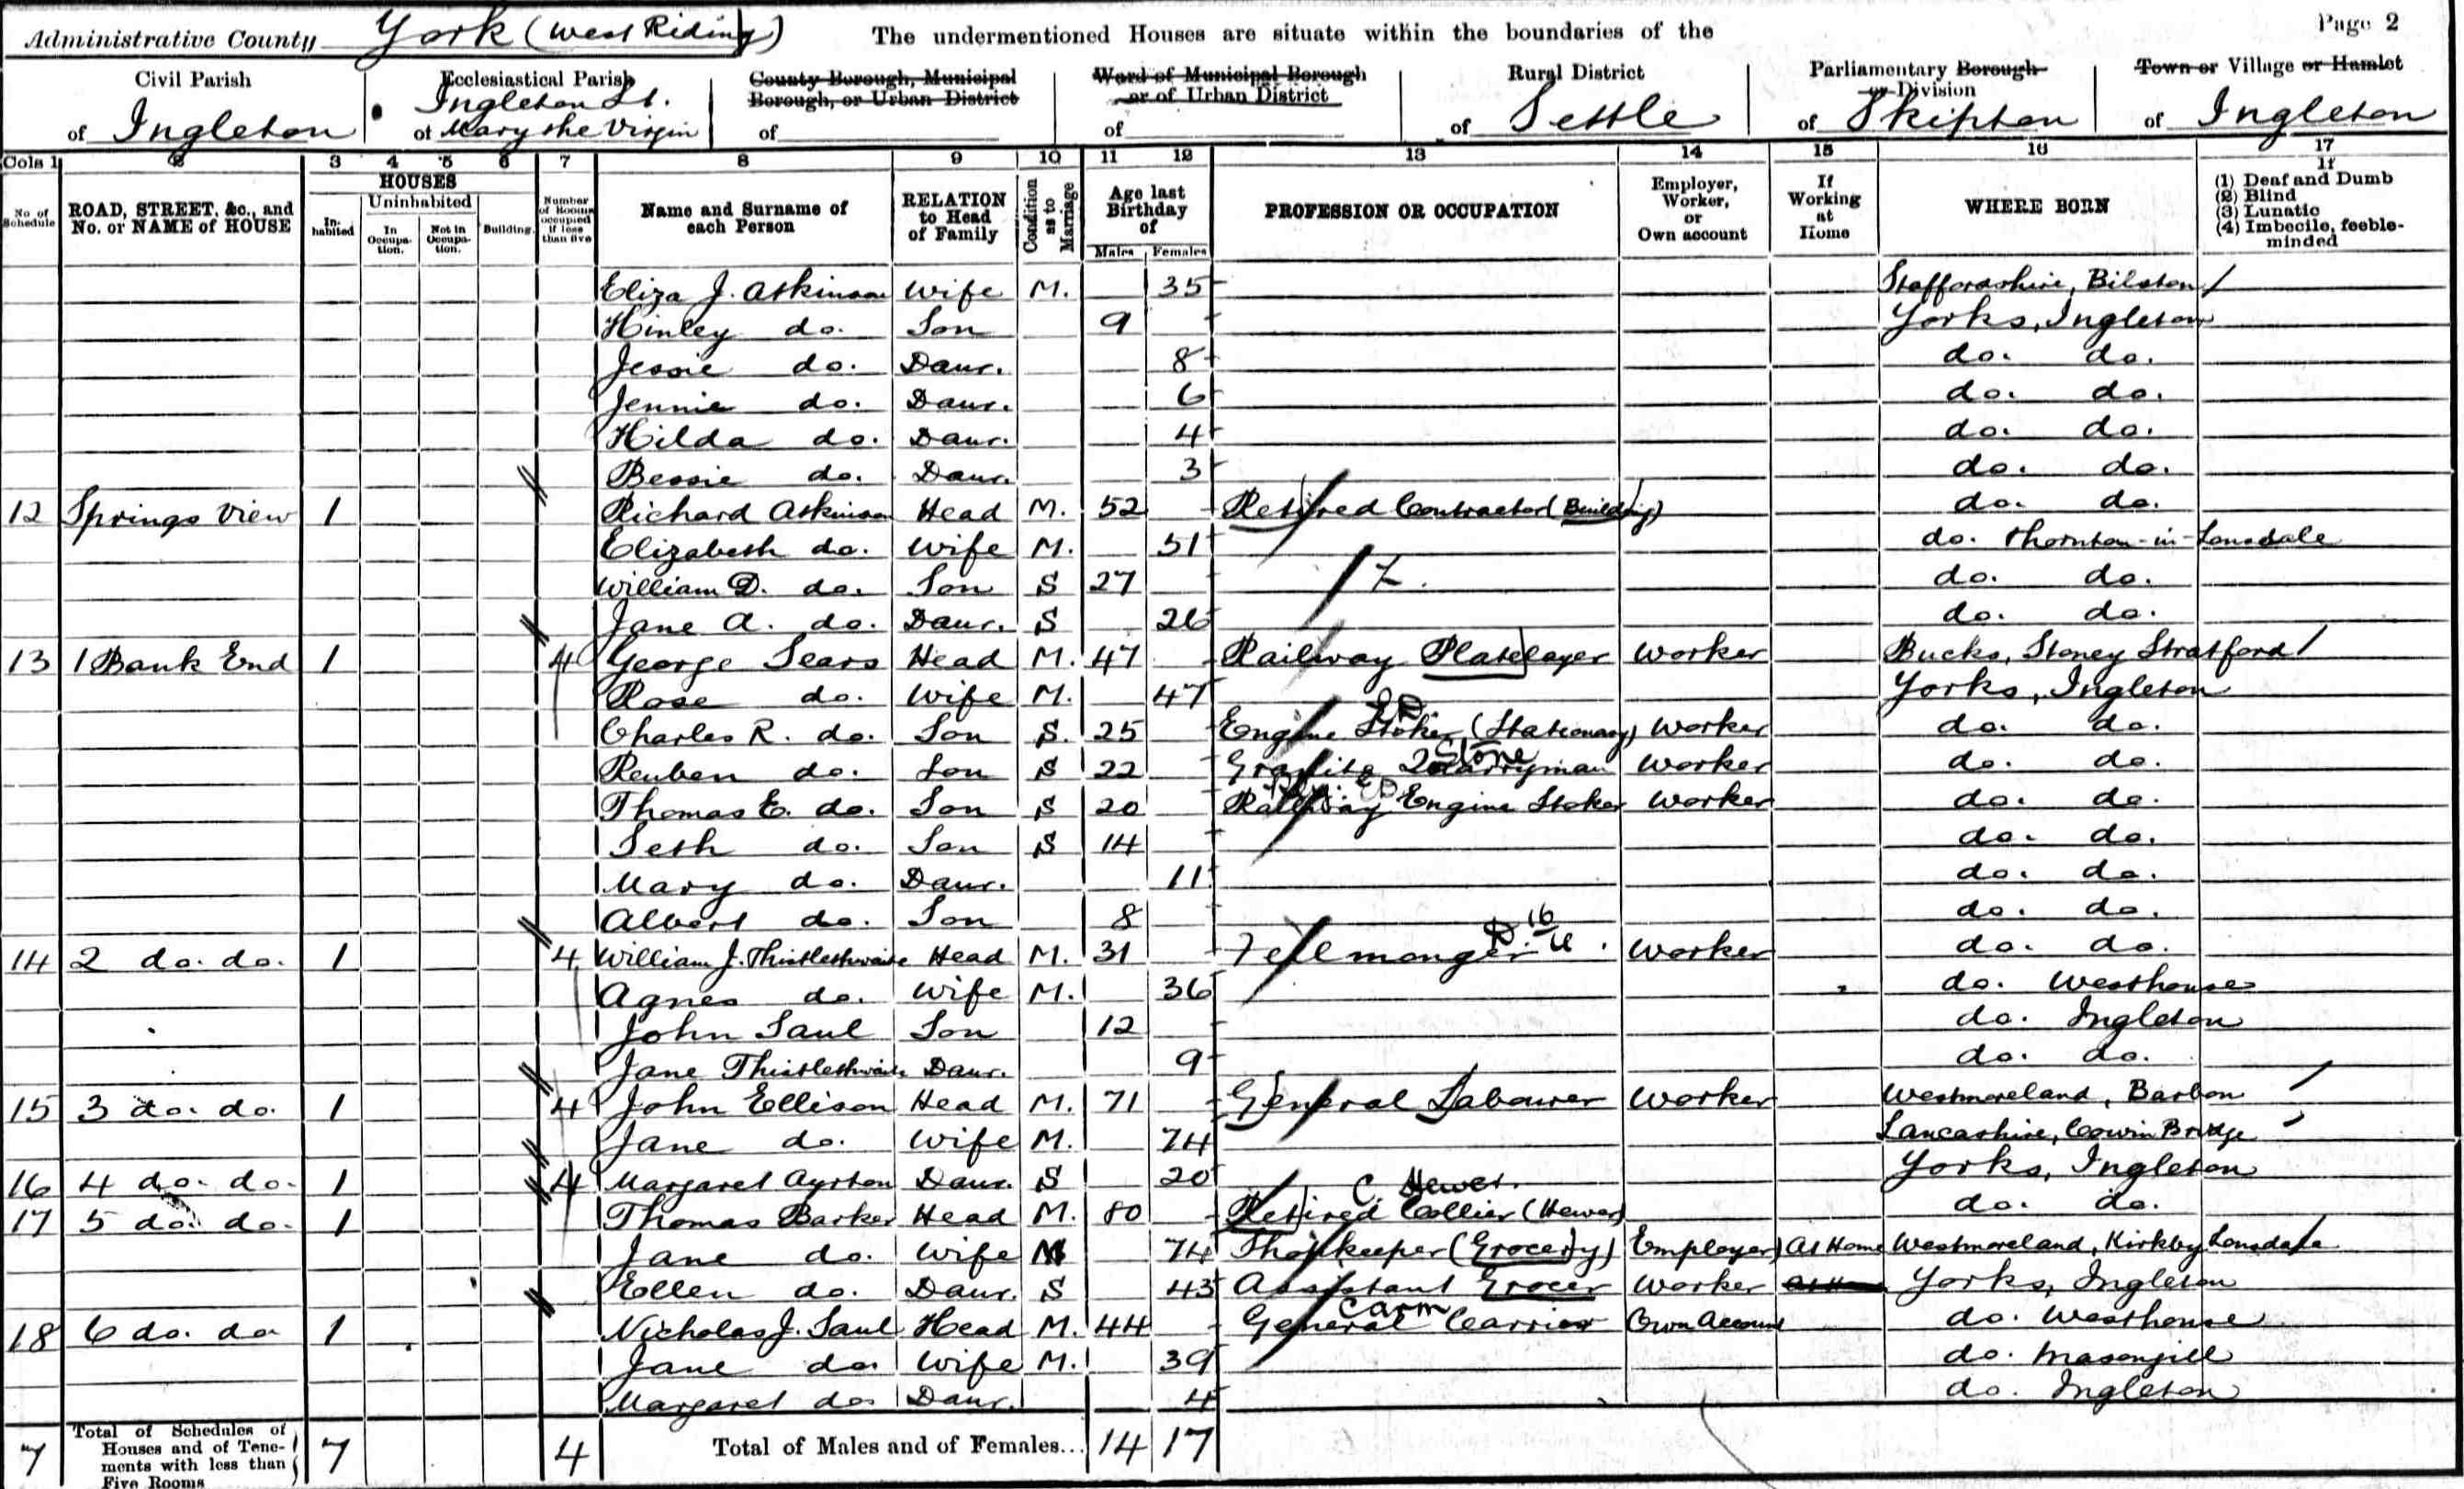 Page 2
Administrative County York (West Riding) The undermentioned Houses are situate within the boundaries of the
Civil Parish of Ingleton
Ecclesiastical Parish of Ingleton St. Mary the Virgin
County Borough, Municipal Borough, or Urban District of
Ward of Municipal Borough or of Urban District of
Rural District of Settle
Parliamentary Borough or Division of Skipton
Town or Village or Hamlet of Ingleton
Cols 1 2 3 4 5 6 7 8 9 10 11 12 13 14 15 16 17
No. of Schedule
ROAD, STREET, &c., and No. or NAME of HOUSE
HOUSES
In-habited
Uninhabited
In Occupa-tion.
Not in Occupa-tion.
Building.
Number of Rooms occupied if less than five
Name and Surname of each Person
RELATION to Head of Family
Condition as to Marriage
Age last Birthday of
Males Females
PROFESSION OR OCCUPATION
Employer, Worker, or Own account
If Working at Home
WHERE BORN
If
(1) Deaf and Dumb
(2) Blind
(3) Lunatic
(4) Imbecile, feeble-minded
Eliza J. Atkinson Wife M. 35 Staffordshire, Bilston
Hinley do. Son 9 Yorks, Ingleton
Jessie do. Daur. 8 do. do.
Jennie do. Daur. 6 do. do.
Hilda do. Daur. 4 do. do.
Bessie do. Daur. 3 do. do.
12 Springs View 1 Richard Atkinson Head M. 52 Retired Contractor (Building) do. do.
Elizabeth do. Wife M. 51 do. Thornton-in-Lonsdale
William D. do. Son S 27 do. do.
Jane A. do. Daur. S 26 do. do.
13 1 Bank End 1 4 George Sears Head M. 47 Railway Platelayer Worker Bucks, Stoney Stratford
Rose do. Wife M. 47 Yorks, Ingleton
Charles R. do. Son S. 25 Engine Stoker (Stationary) Worker do. do.
Stone
Reuben do. Son S 22 Granite Quarryman Worker do. do.
Thomas E. do. Son S 20 Railway Engine Stoker Worker do. do.
Seth do. Son S 14 do. do.
Mary do. Daur. 11 do. do.
Albert do. Son 8 do. do.
14 2 do. do. 1 4 William J. Thistlethwaite Head M. 31 Fellmonger Worker do. do.
Agnes do. Wife M. 36 do. Westhouse
John Saul Son 12 do. Ingleton
Jane Thistlethwaite Daur. 9 do. do.
15 3 do. do. 1 4 John Ellison Head M. 71 General Labourer Worker Westmoreland, Barbon
Jane do. Wife M. 74 Lancashire, Cowin Bridge
16 4 do. do. 1 4 Margaret Ayrton Daur. S 20 Yorks, Ingleton
C. Hewer.
17 5 do. do. 1 Thomas Barker Head M. 80 Retired Collier (Hewer) do. do.
Jane do. Wife M 74 Shopkeeper (Grocery) Employer At Home Westmoreland, Kirkby Lonsdale
Ellen do. Daur. S 43 Assistant Grocer Worker At Home Yorks, Ingleton
Carm
18 6 do. do 1 Nicholas J. Saul Head M. 44 General Carrier Own Account do. Westhouse
Jane do. Wife M. 39 do. Masongill
Margaret do. Daur. 4 do. Ingleton
7 Total of Schedules of Houses and of Tene-ments with less than Five Rooms 7 4 Total of Males and of Females... 14 17